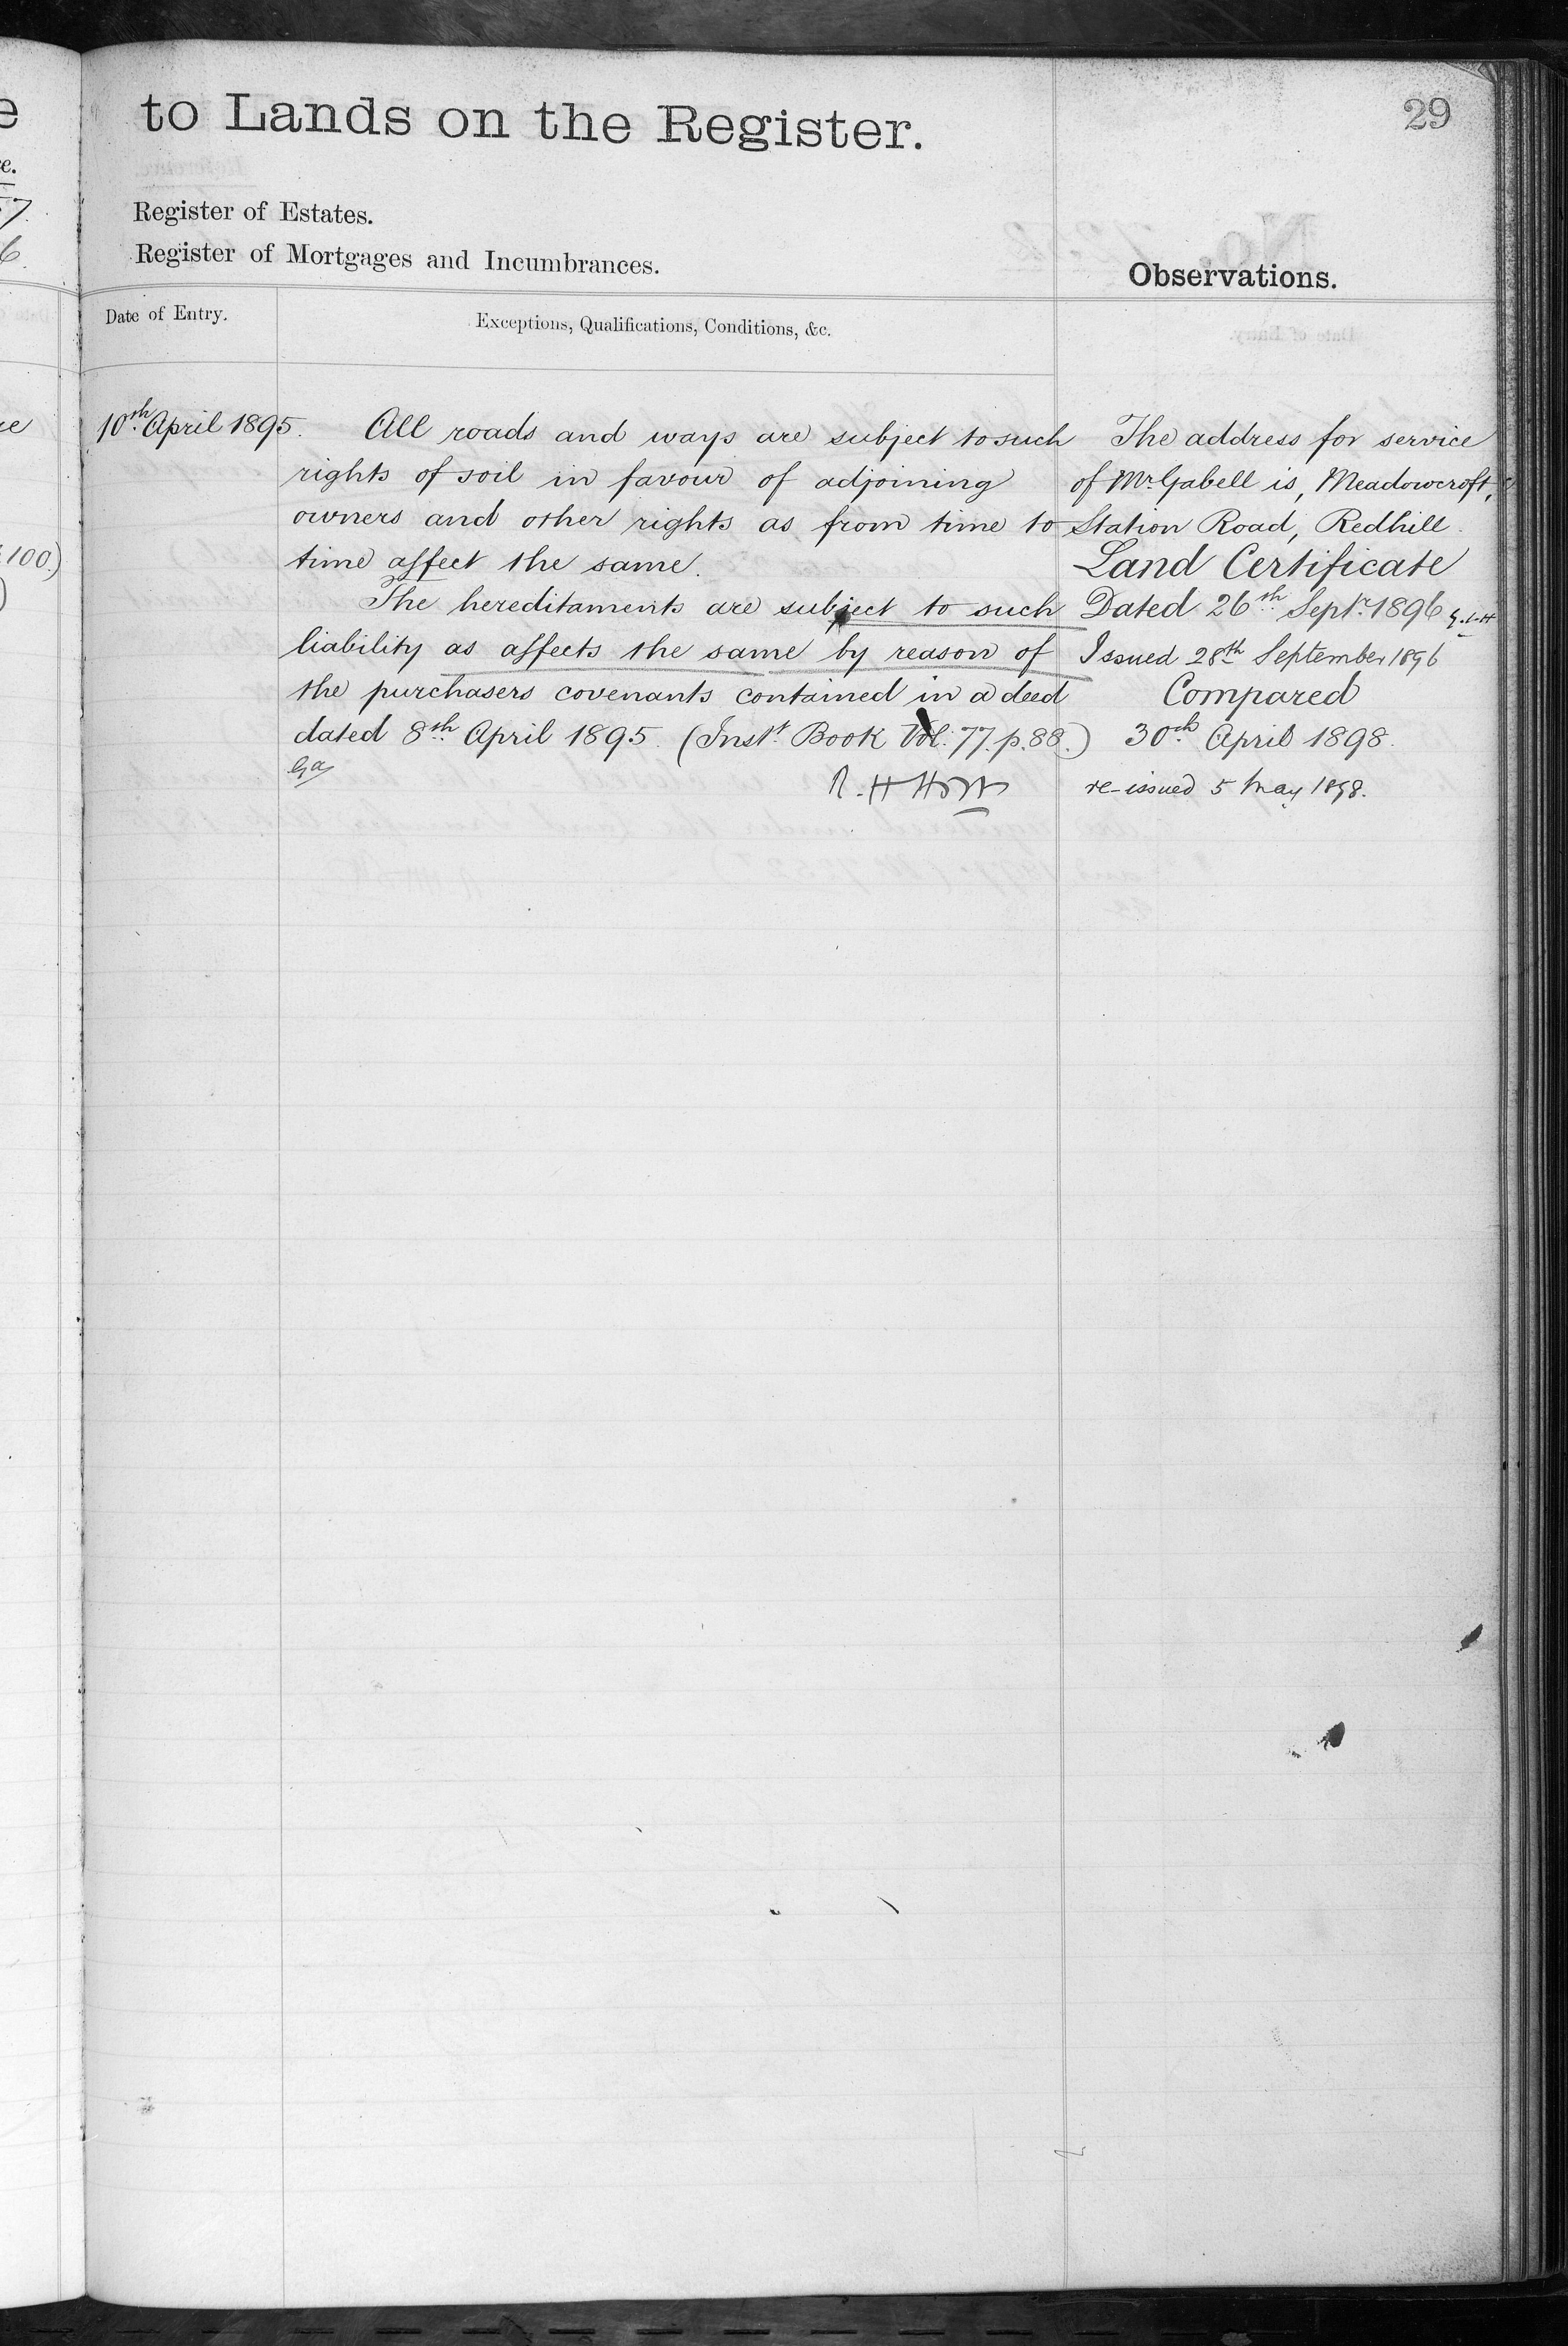 to Lands on the Register.
29
Register of Estates.
Register of Mortgages and Incumbrances.
Observations.
Date of Entry.
Exceptions, Qualifications, Conditions, &c.
10th April 1895.
All roads and ways are subject to such
rights of soil in favour of adjoining
owners and other rights as from time to
time affect the same.
The hereditaments are subject to such
liability as affects the same by reason of
the purchasers covenants contained in a deed
dated 8th April 1895. (Instt Book Vol. 77. p. 88.)
The address for service
of Mr Gabell is, Meadowcroft,
Station Road, Redhill.
Land Certificate
Dated 26th Septr 1896
Issued 28th September 1896
Compared
30th April 1898.
re-issued 5 May 1898.
e
re.
57
6.
100.)
)